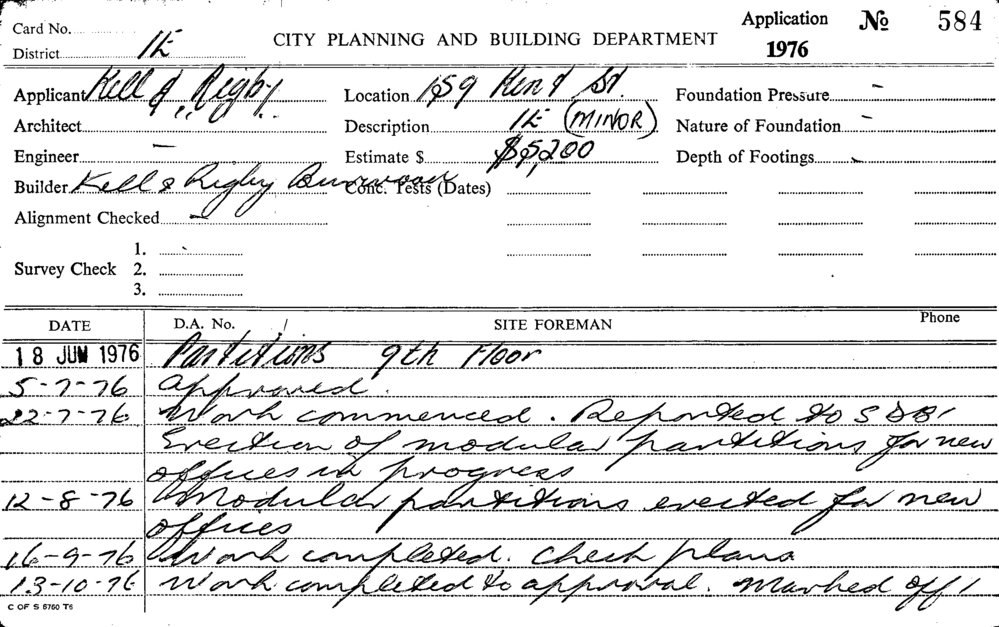 Card No. Application № 584
District 1E CITY PLANNING AND BUILDING DEPARTMENT 1976
Applicant Kell & Rigby Location 159 Kent St. Foundation Pressure -
Architect Description 1E (MINOR) Nature of Foundation -
Engineer - Estimate $ $5,200 Depth of Footings
Builder Kell & Rigby Burwood Conc. Tests (Dates)
Alignment Checked -
1.
Survey Check 2.
3.
DATE D.A. No. / SITE FOREMAN Phone
18 JUN 1976 Partitions 9th Floor
5-7-76 Approved.
22-7-76 Work commenced. Reported to SDB
Erection of modular partitions for new
offices in progress
12-8-76 Modular partitions erected for new
offices
16-9-76 Work completed. Check plans
13-10-76 Work completed to approval. Marked off
C OF S 5760 T6